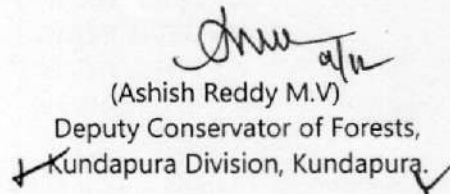 (Ashish Reddy M.V)
Deputy Conservator of Forests,
Kundapura Division, Kundapura.